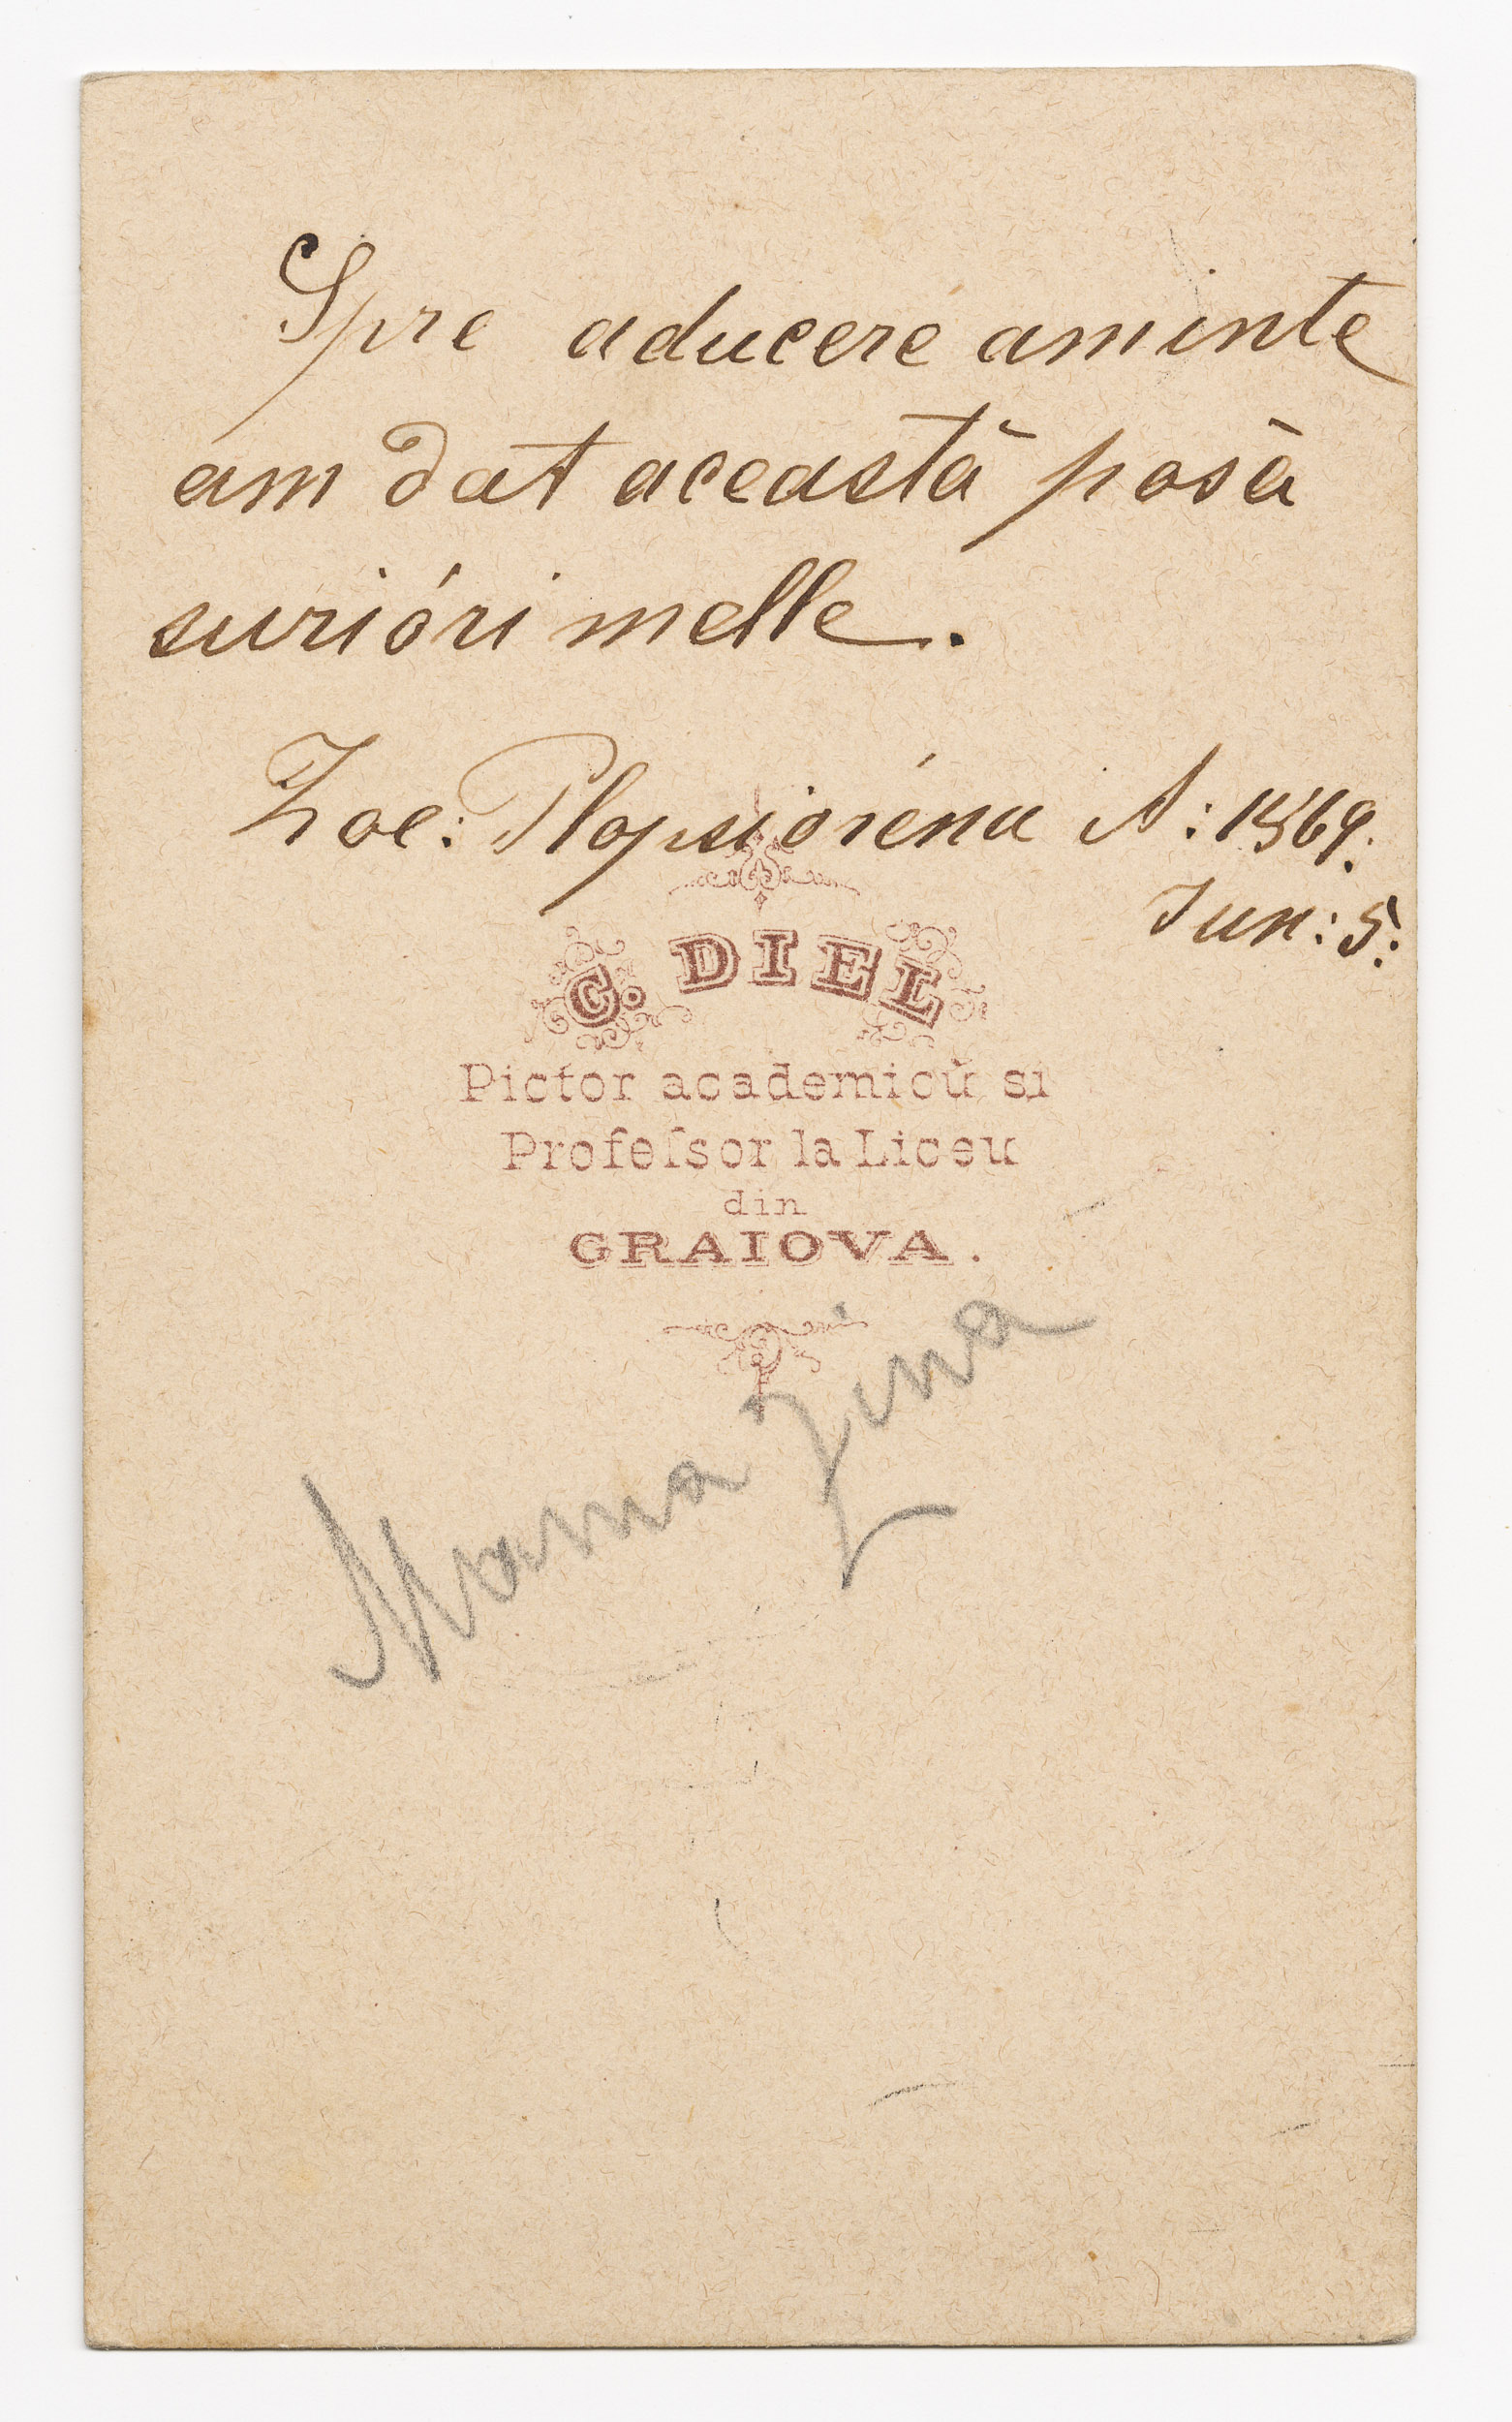 Spre aducere aminte
am dat această posă
surióri melle.
Zoe: Plopsiorénu A: 1869.
Iun: 5.
C. DIEL
Pictor academicŭ si
Profeſsor la Liceu
din
GRAIOVA.
Mama Zina